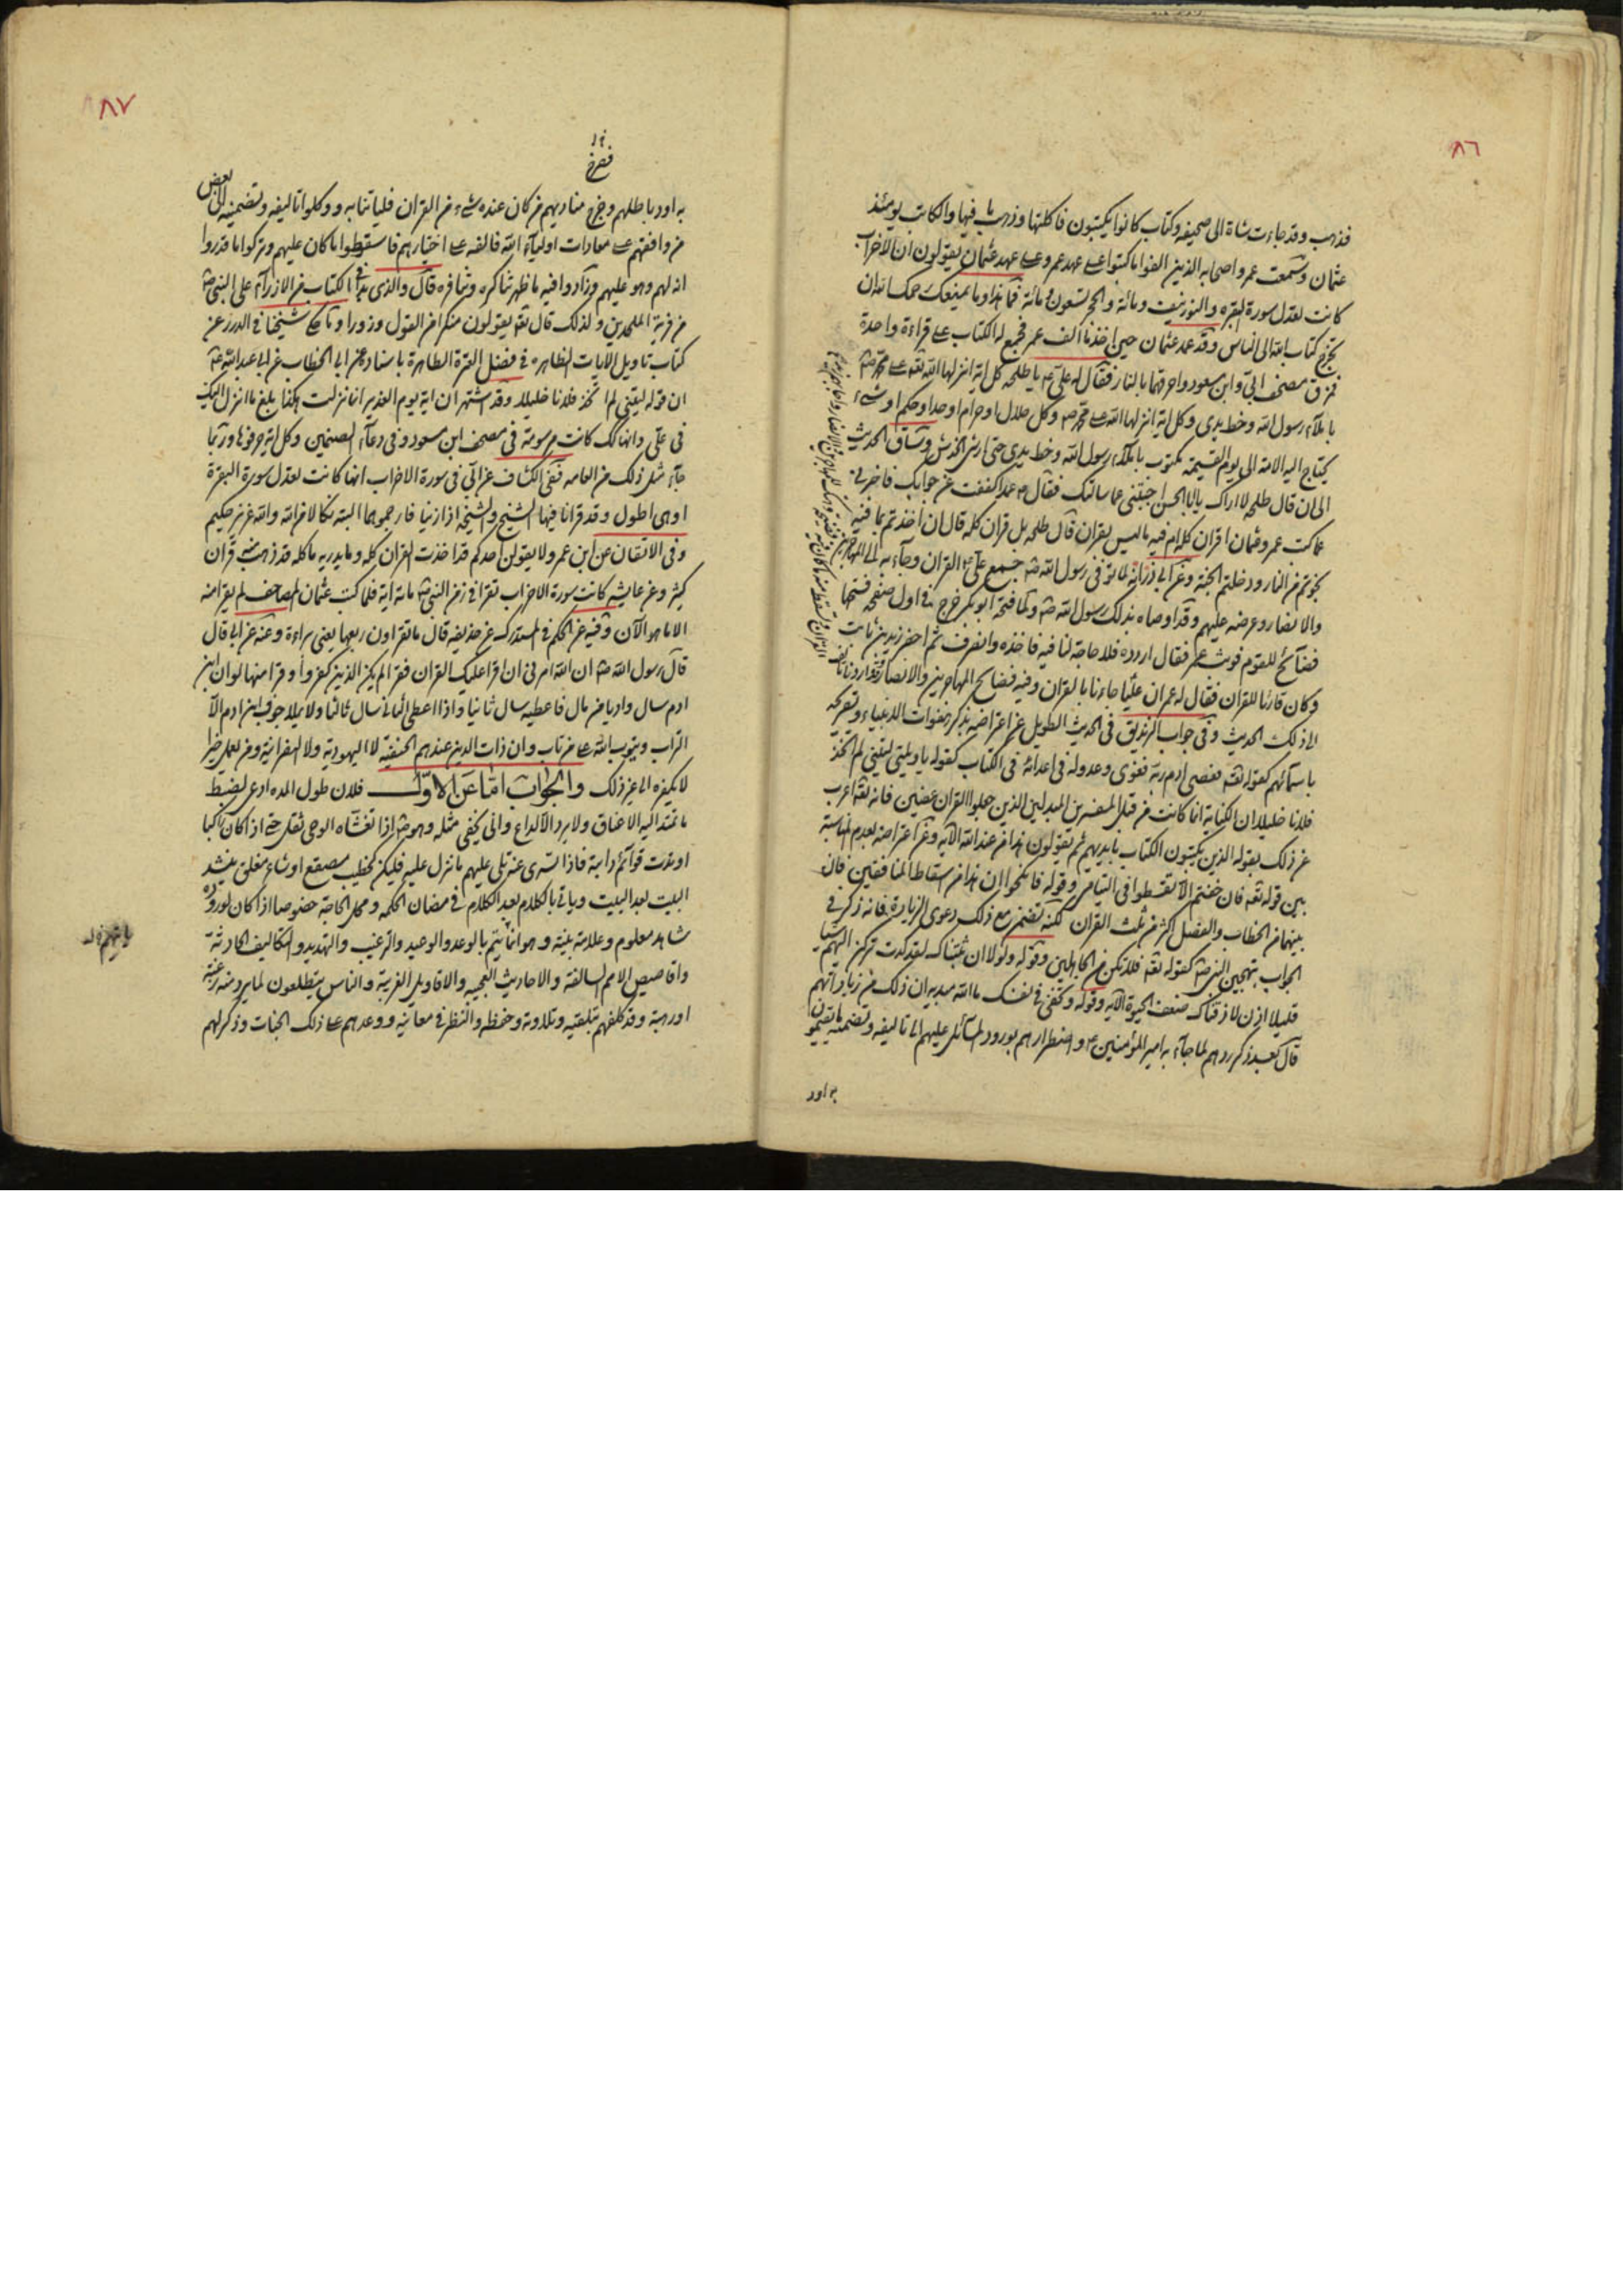 ٨٦
فذهب وقد جاءت شاة الى صحيفة وكتاب كانوا يكتبون فاكلتها وذهب ما فيها والكاتب يومئذ
عثمان وسمعت عمر واصحابه الذين الفوا ما كتبوا على عهد عمر وعلى عهد عثمان يقولون ان الاحزاب
كانت تعدل سورة البقرة والنور نيف ومائة والحجر تسعون ومائة فما هذا وما يمنعك يرحمك الله ان
تخرج كتاب الله الى الناس وقد عمد عثمان حين اخذ ما الف عمر فجمع له الكتاب على قراءة واحدة
فمزق مصحف ابي وابن مسعود واحرقهما بالنار فقال له علي ع يا طلحة كل اية انزلها الله تعه على محمد ص
باملاء رسول الله وخط يدي وكل اية انزلها الله على محمد ص وكل حلال او حرام او حد او حكم او شيء
يحتاج اليه الامة الى يوم القيمة مكتوب باملاء رسول الله وخط يدي حتى ارش الخدش وساق الحديث
الى ان قال طلحة لا اراك يا ابا الحسن اجبتني عما سالتك فقال ع عمدا كففت عن جوابك فاخبرني
عما كتب عمر وعثمان اقران كله ام فيه ما ليس بقران قال طلحة بل قران كله قال ان اخذتم بما فيه
نجوتم من النار ودخلتم الجنة وعن ابي ذر انه لما توفي رسول الله ص جمع علي ع القران وجاء به الى المهاجرين
والانصار وعرضه عليهم وقد اوصاه بذلك رسول الله ص ولما فتحه ابو بكر خرج في اول صفحة فتحها
فضائح القوم فوثب عمر فقال اردده فلا حاجة لنا فيه فاخذه وانصرف ثم احضر زيد بن ثابت
وكان قارئا للقران فقال له عمر ان عليا جاءنا بالقران وفيه فضائح المهاجرين والانصار وقد اردنا ان تؤلف
الى ذلك الحديث وفي جواب الزنديق في الحديث الطويل عن اعتراضه بذكر هفوات الانبياء وتصريحه
باسمائهم كقوله تعه فعصى ادم ربه فغوى وعدوله في اعدائه في الكتاب كقوله يا ويلتى ليتني لم اتخذ
فلانا خليلا ان الكناية انما كانت من قبل المغيرين المبدلين الذين جعلوا القران عضين فانه تعه اعرب
عن ذلك بقوله الذين يكتبون الكتاب بايديهم ثم يقولون هذا من عند الله الآية وعن اعتراضه بعدم المناسبة
بين قوله تعه فان خفتم الا تقسطوا في اليتامى وقوله فانكحوا ان هذا من اسقاط المنافقين فان
بينهما من الخطاب والقصص اكثر من ثلث القران لكنه تضمن مع ذلك دعوى الزيادة فانه ذكر في
الجواب بتهجين النبي ص كقوله تعه فلا تكونن من الجاهلين وقوله ولولا ان ثبتناك لقد كدت تركن اليهم شيئا
قليلا اذن لاذقناك ضعف الحيوة الآية وقوله وتخفي في نفسك ما الله مبديه ان ذلك من زياداتهم
قال بعد ذكر ردهم لما جاء به امير المؤمنين ع واضطرارهم بورود المسائل عليهم الى تاليفه وتضمينه ما يقيمون
به اود
٨٧
به اود باطلهم وخرج مناديهم من كان عنده شيء من القران فلياتنا به ووكلوا تاليفه وتضمينه الى بعض
من وافقهم على معادات اولياء الله فالفه على اختيارهم فاسقطوا ما كان عليهم وتركوا ما قدروا
انه لهم وهو عليهم وزادوا فيه ما ظهر تناكره وتنافره قال والذي بدا في الكتاب من الازراء على النبي ص
من فرية الملحدين ولذلك قال تعه يقولون منكرا من القول وزورا وما حكى شيخنا في الدرر عن
كتاب تاويل الايات الظاهرة في فضل العترة الطاهرة باسناده عن ابي الخطاب عن ابي عبد الله ع
ان قوله ليتني لم اتخذ فلانا خليلا وقد اشتهر ان اية يوم الغدير انما نزلت هكذا بلغ ما انزل اليك
في علي وانها كانت مرسومة في مصحف ابن مسعود وفي دعاء الصنمين وكل اية حرفوها وربما
جاء مثل ذلك من العامه ففي الكشاف عن ابي في سورة الاحزاب انها كانت تعدل سورة البقرة
او هي اطول وقد قرانا فيها الشيخ والشيخة اذا زنيا فارجموهما البتة نكالا من الله والله عزيز حكيم
وفي الاتقان عن ابن عمر ولا يقولن احدكم قد اخذت القران كله وما يدريه ما كله قد ذهب منه قران
كثير وعن عايشه كانت سورة الاحزاب تقرا في زمن النبي ص مائة اية فلما كتب عثمان المصاحف لم يقر منه
الا ما هو الآن وفيه عن الحكم في المستدرك عن حذيفة قال ما تقراون ربعها يعني براءة وعنه عن ابي قال
قال رسول الله ص ان الله امرني ان اقرا عليك القران فقرا لم يكن الذين كفروا وقرا منها لو ان ابن
ادم سال واديا من مال فاعطيه سال ثانيا واذا اعطي الثاني سال ثالثا ولا يملا جوف ابن ادم الا
التراب ويتوب الله على من تاب وان ذات الدين عند هم الحنيفية لا اليهودية ولا النصرانية ومن يعمل خيرا
لا يكفره الى غير ذلك والجواب امّا عن الاوّل فلان طول المدة ادعى لضبط
ما تمتد اليه الاعناق ولا يرد الا لداع وانى يخفى مثله وهو ص اذا تغشاه الوحي ثقل حتى اذا كان راكبا
اوتدت قوائم دابته فاذا تسرى عنه تلى عليهم ما نزل عليه فليكن كخطيب مصقع او شاعر مفلق ينشد
البيت بعد البيت وياتي بالكلام بعد الكلام في مضان الحكمة ومحل الحاجة خصوصا اذا كان لوروده
شاهد معلوم وعلامة بينة وهو انما يتم بالوعد والوعيد والترغيب والتهديد والتكاليف الحادثة
واقاصيص الامم السالفة والاحاديث العجيبه والاقاويل الغريبة والناس يتطلعون لما يرد منه رغبة
او رهبة وقد كلفهم بتلقيه وتلاوته وحفظه والنظر في معانيه ووعدهم على ذلك الجنات وذكر لهم